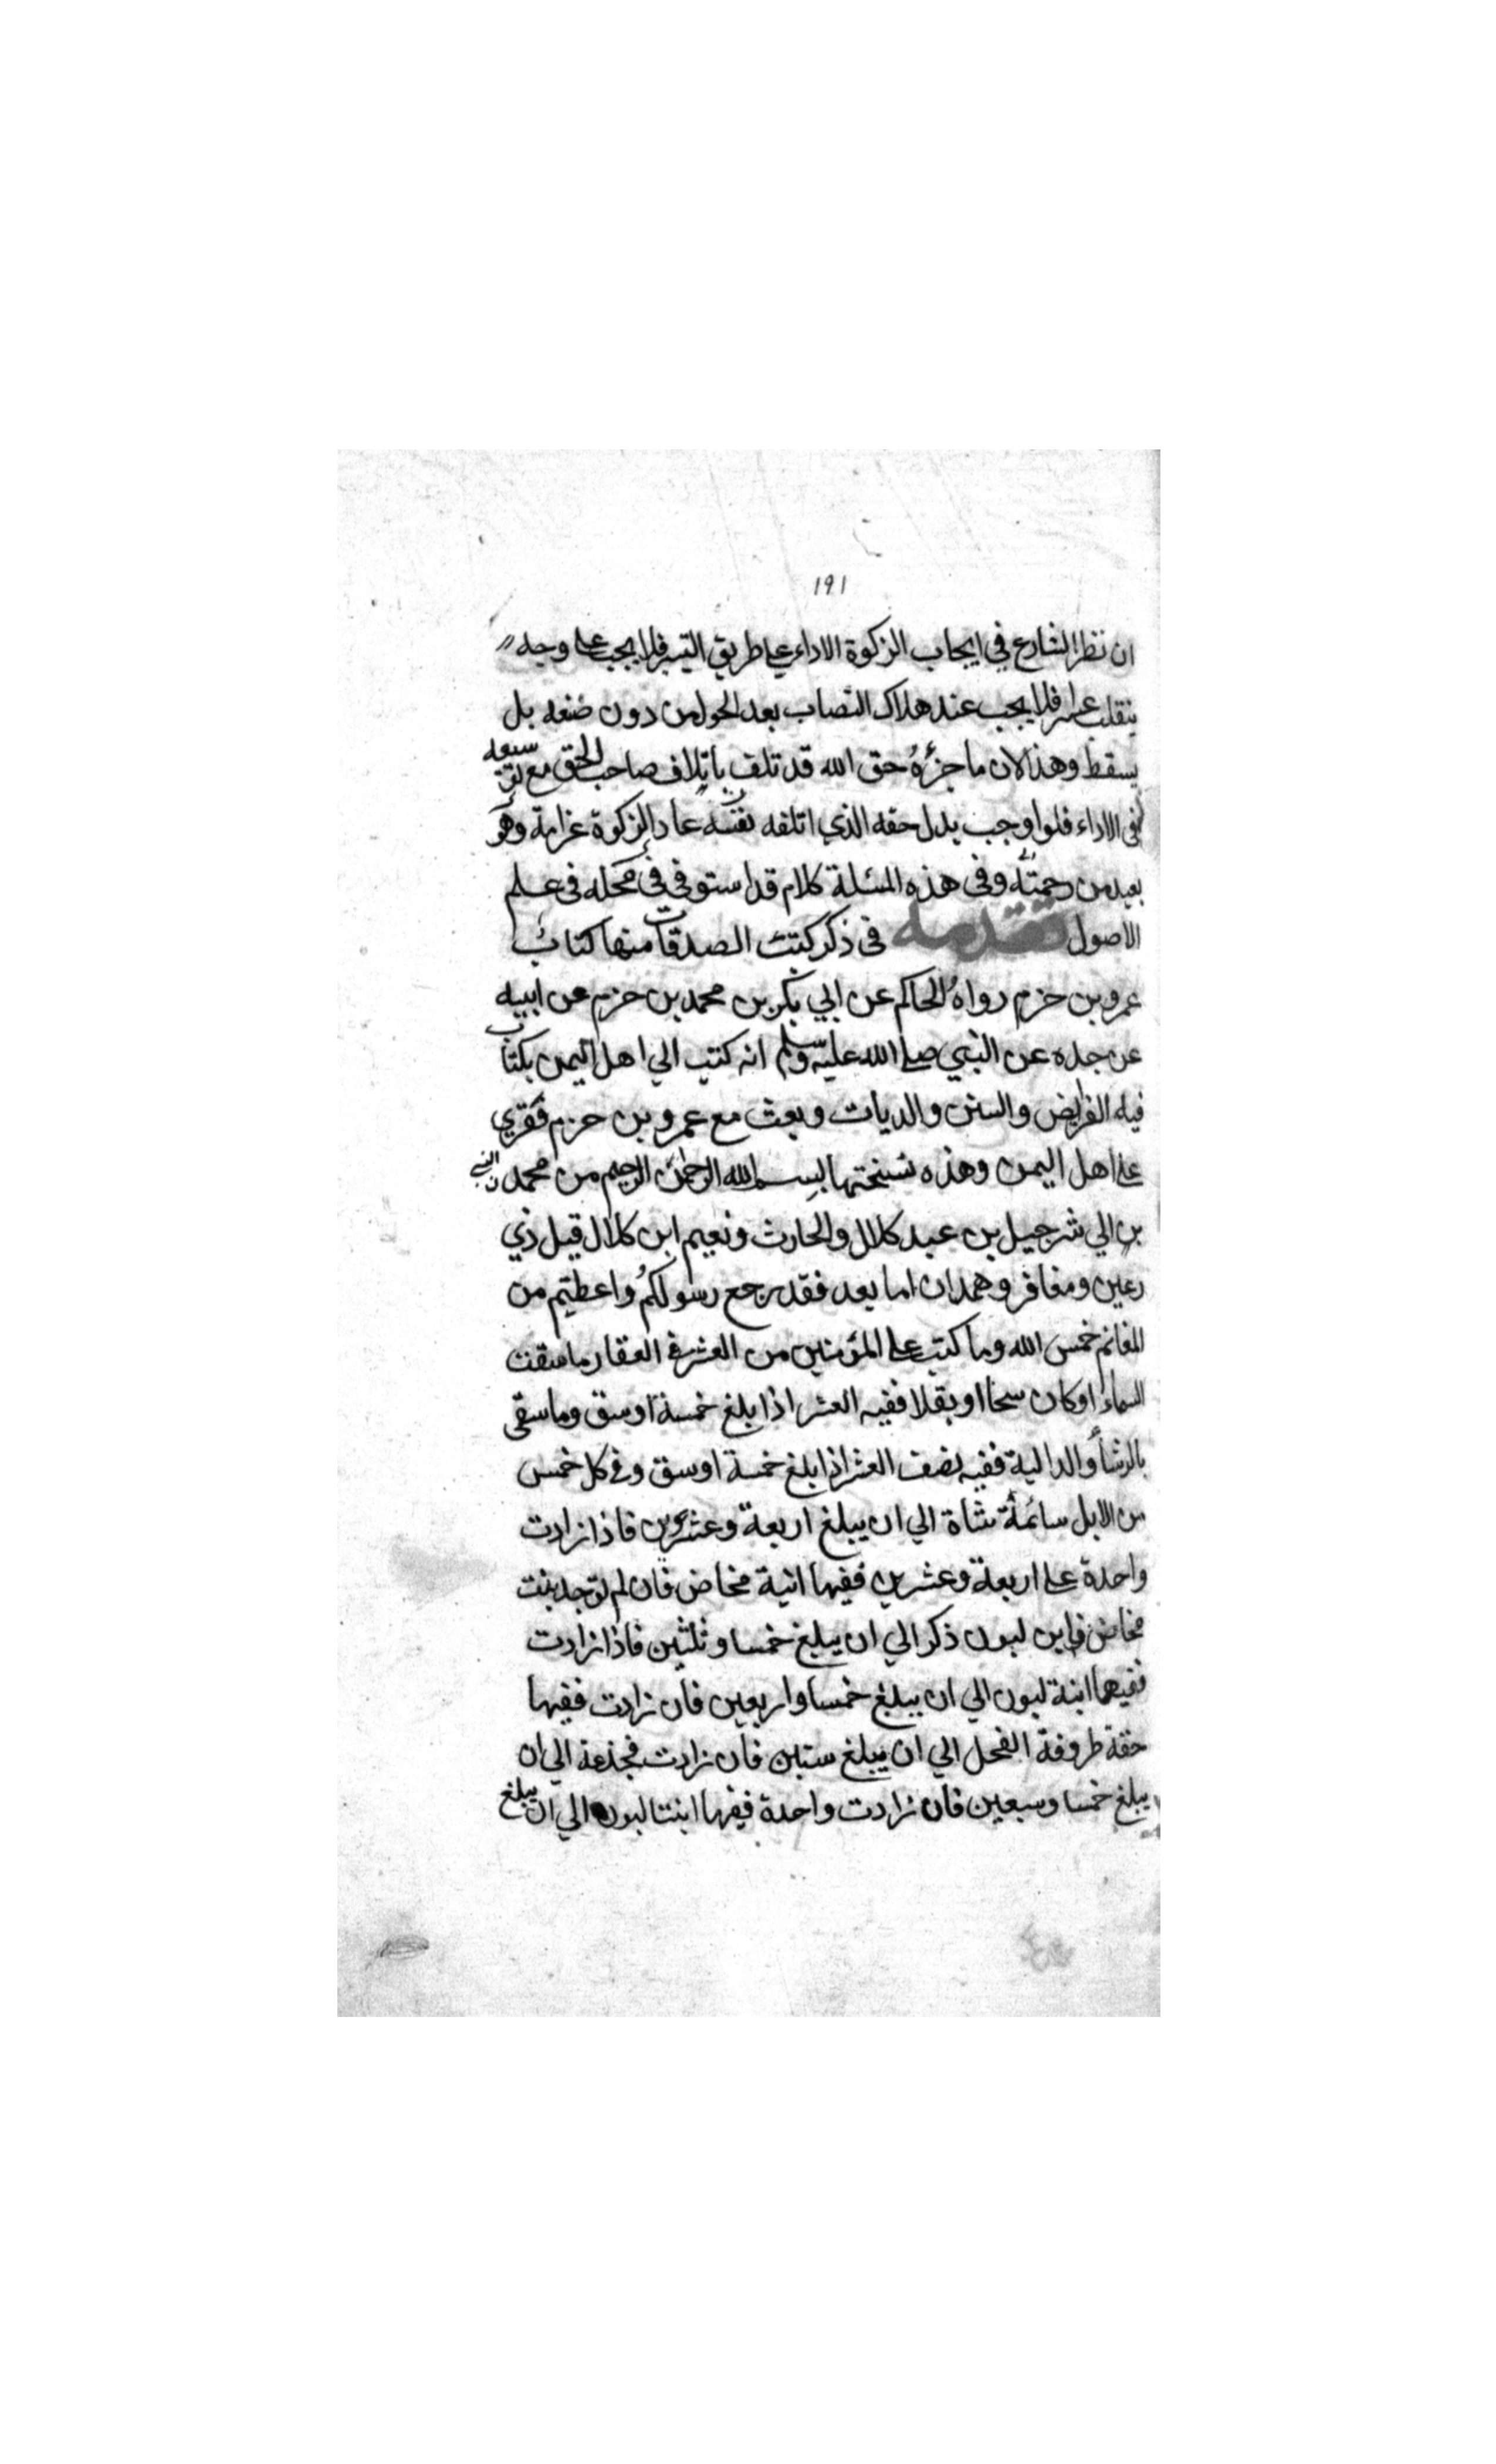 ١٩١
ان نظر الشارع في ايجاب الزكوة الاداء على طريق التيسر فلا يجب على وجه
ينقلب عسرا فلا يجب عند هلاك النصاب بعد الحول من دون ضنعه بل
يسقط وهذا لان ما جزؤه حق الله قد تلف باتلاف صاحب الحق مع
في الاداء فلو اوجب بدل حقه الذي اتلفه نفسه عاد الزكوة غرامة وهو
بعيد من رحمته وفي هذه المسئلة كلام قد استوفي في محله في علم
الاصول تقدمه في ذكر كتب الصدقات منها كتاب
عمرو بن حزم رواه الحاكم عن ابي بكر بن محمد بن حزم عن ابيه
عن جده عن النبي صلى الله عليه وسلم انه كتب الي اهل اليمن بكتاب
فيه الفرايض والسنن والديات وبعث مع عمرو بن حزم فقري
على اهل اليمن وهذه نسختها بسم الله الرحمن الرحيم من محمد النبي
الي شرجيل بن عبد كلال والحارث ونعيم ابن كلال قيل ذي
رعين ومغافر وهمدان اما بعد فقد رجع رسولكم واعطيتم من
المغانم خمس الله وما كتب على المؤمنين من العشر في العقار ما سقت
السماء او كان سحا او بقلا ففيه العشر اذا بلغ خمسة اوسق وما سقي
بالرشا والدالية ففيه نصف العشر اذا بلغ خمسة اوسق وفي كل خمس
من الابل سائمة شاة الي ان يبلغ اربعة وعشرين فاذا زادت
واحدة على اربعة وعشرين ففيها ابنة مخاض فان لم توجد بنت
مخاض فابن لبون ذكر الي ان يبلغ خمسا وثلثين فاذا زادت
ففيها ابنة لبون الي ان يبلغ خمسا واربعين فان زادت ففيها
حقة طروقة الفحل الي ان يبلغ ستين فان زادت فجذعة الي ان
يبلغ خمسا وسبعين فان زادت واحدة ففيها ابنتا لبون الي ان يبلغ